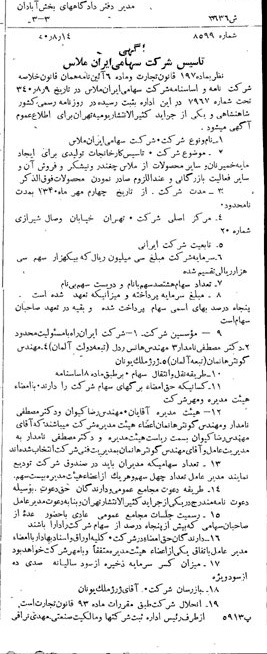 مدیر دفتر دادگاههای بخش آبادان
ش۲۶۳۶ ۳-۳
شماره ۸۵۹۹ ۲۰ر۸ر۱۴
آگهی
تاسیس شرکت سهامی ایران ملاس
نظر بماده ۱۹۷ قانون تجارت و ماده ۶ آئین‌نامه همان قانون خلاصه
شرکت نامه و اساسنامه شرکت سهامی ایران ملاس در تاریخ ۴۰ر۸ر۹
تحت شماره ۷۹۶۷ در این اداره بثبت رسیده در روزنامه رسمی کشور
شاهنشاهی و یکی از جراید کثیرالانتشار یومیه تهران برای اطلاع عموم
آگهی میشود
۱ـ نام و نوع شرکت: شرکت سهامی ایران ملاس
۲ ـ موضوع شرکت: تاسیس کارخانجات تولیدی برای ایجاد
مایه خمیرنان و سایر محصولات از ملاس چغندر و نیشکر و فروش آن و
سایر فعالیت بازرگانی و عنداللزوم صادر نمودن محصولات فوق‌الذکر
۳ ـ مدت شرکت . از تاریخ چهارم مهر ماه ۱۳۴۰ بمدت
نامحدود
۴ ـ مرکز اصلی شرکت: تهران خیابان وصال شیرازی
شماره ۲۰
۵ ـ تابعیت شرکت ایرانی
۶ـ سرمایه شرکت مبلغ سی میلیون ریال که بیکهزار سهم سی
هزار ریالی تقسیم شده
۷ ـ تعداد سهام هشتصد سهم با نام و دویست سهم بی‌نام
۸ ـ مبلغ سرمایه پرداخته و میزانیکه تعهد شده است .
پنجاه درصد بهای اسمی سهام پرداخت شده و بقیه در تعهد صاحبان
سهام است
۹ ـ مؤسسین شرکت. ۱ـ شرکت ایران راه با مسئولیت محدود
۲ـ دکتر مصطفی نامدار ۳ مهندس هانس ردل (تبعه دولت آلمان) ۴ـ مهندس
گونتر هانمان (تبعه آلمان) ۵ـ ژرژ ملک یونان
۱۰ـ طریقه نقل و انتقال سهام: بر طبق ماده ۸ اساسنامه
۱۱ـ کسانیکه حق امضاء برگهای سهام شرکت را دارند: با امضاء
هیئت مدیره و مهر شرکت
۱۲ـ هیئت مدیره آقایان: مهندس رضا کیوان و دکتر مصطفی
نامدار و مهندس گونتر هانمان اعضاء هیئت مدیره شرکت میباشند که آقای
مهندس رضا کیوان بسمت ریاست هیئت مدیره و دکتر مصطفی نامدار به
مدیریت عامل و آقای مهندس گونتر هانمان بمدیریت فنی شرکت انتخاب شده‌اند
۱۳ ـ تعداد سهامیکه مدیران باید در صندوق شرکت تودیع
نمایند مدیر عامل تعداد چهل سهم و هر یک از اعضاء هیئت مدیره بیست سهم.
۱۴ـ طریقه دعوت مجامع عمومی و دارندگان حق دعوت. بوسیله
دعوت نامه مندرج در یکی از جراید کثیرالانتشار تهران و بنا به دعوت مدیر عامل
۱۵ـ رسمیت جلسات مجامع عمومی عادی با حضور عده از
صاحبان سهامی که بیش از پنجاه درصد از سهام شرکت را دارا باشند
۱۶ـ دارندگان حق امضاء در شرکت: کلیه اوراق و اسناد بهادار با امضاء
مدیر عامل باتفاق یکی از اعضاء هیئت مدیره متفقاً و با مهر شرکت خواهد بود
۱۷ـ میزان کسر سرمایه ذخیره از سود سالیانه صدی ده
از سود ویژه
۱۸ـ بازرسان شرکت: آقای ژرژ ملک یونان
۱۹ـ انحلال شرکت طبق مقررات ماده ۹۳ قانون تجارت است
پ۵۹۱۳ از طرف رئیس اداره ثبت شرکتها و مالکیت صنعتی. مهدی نراقی